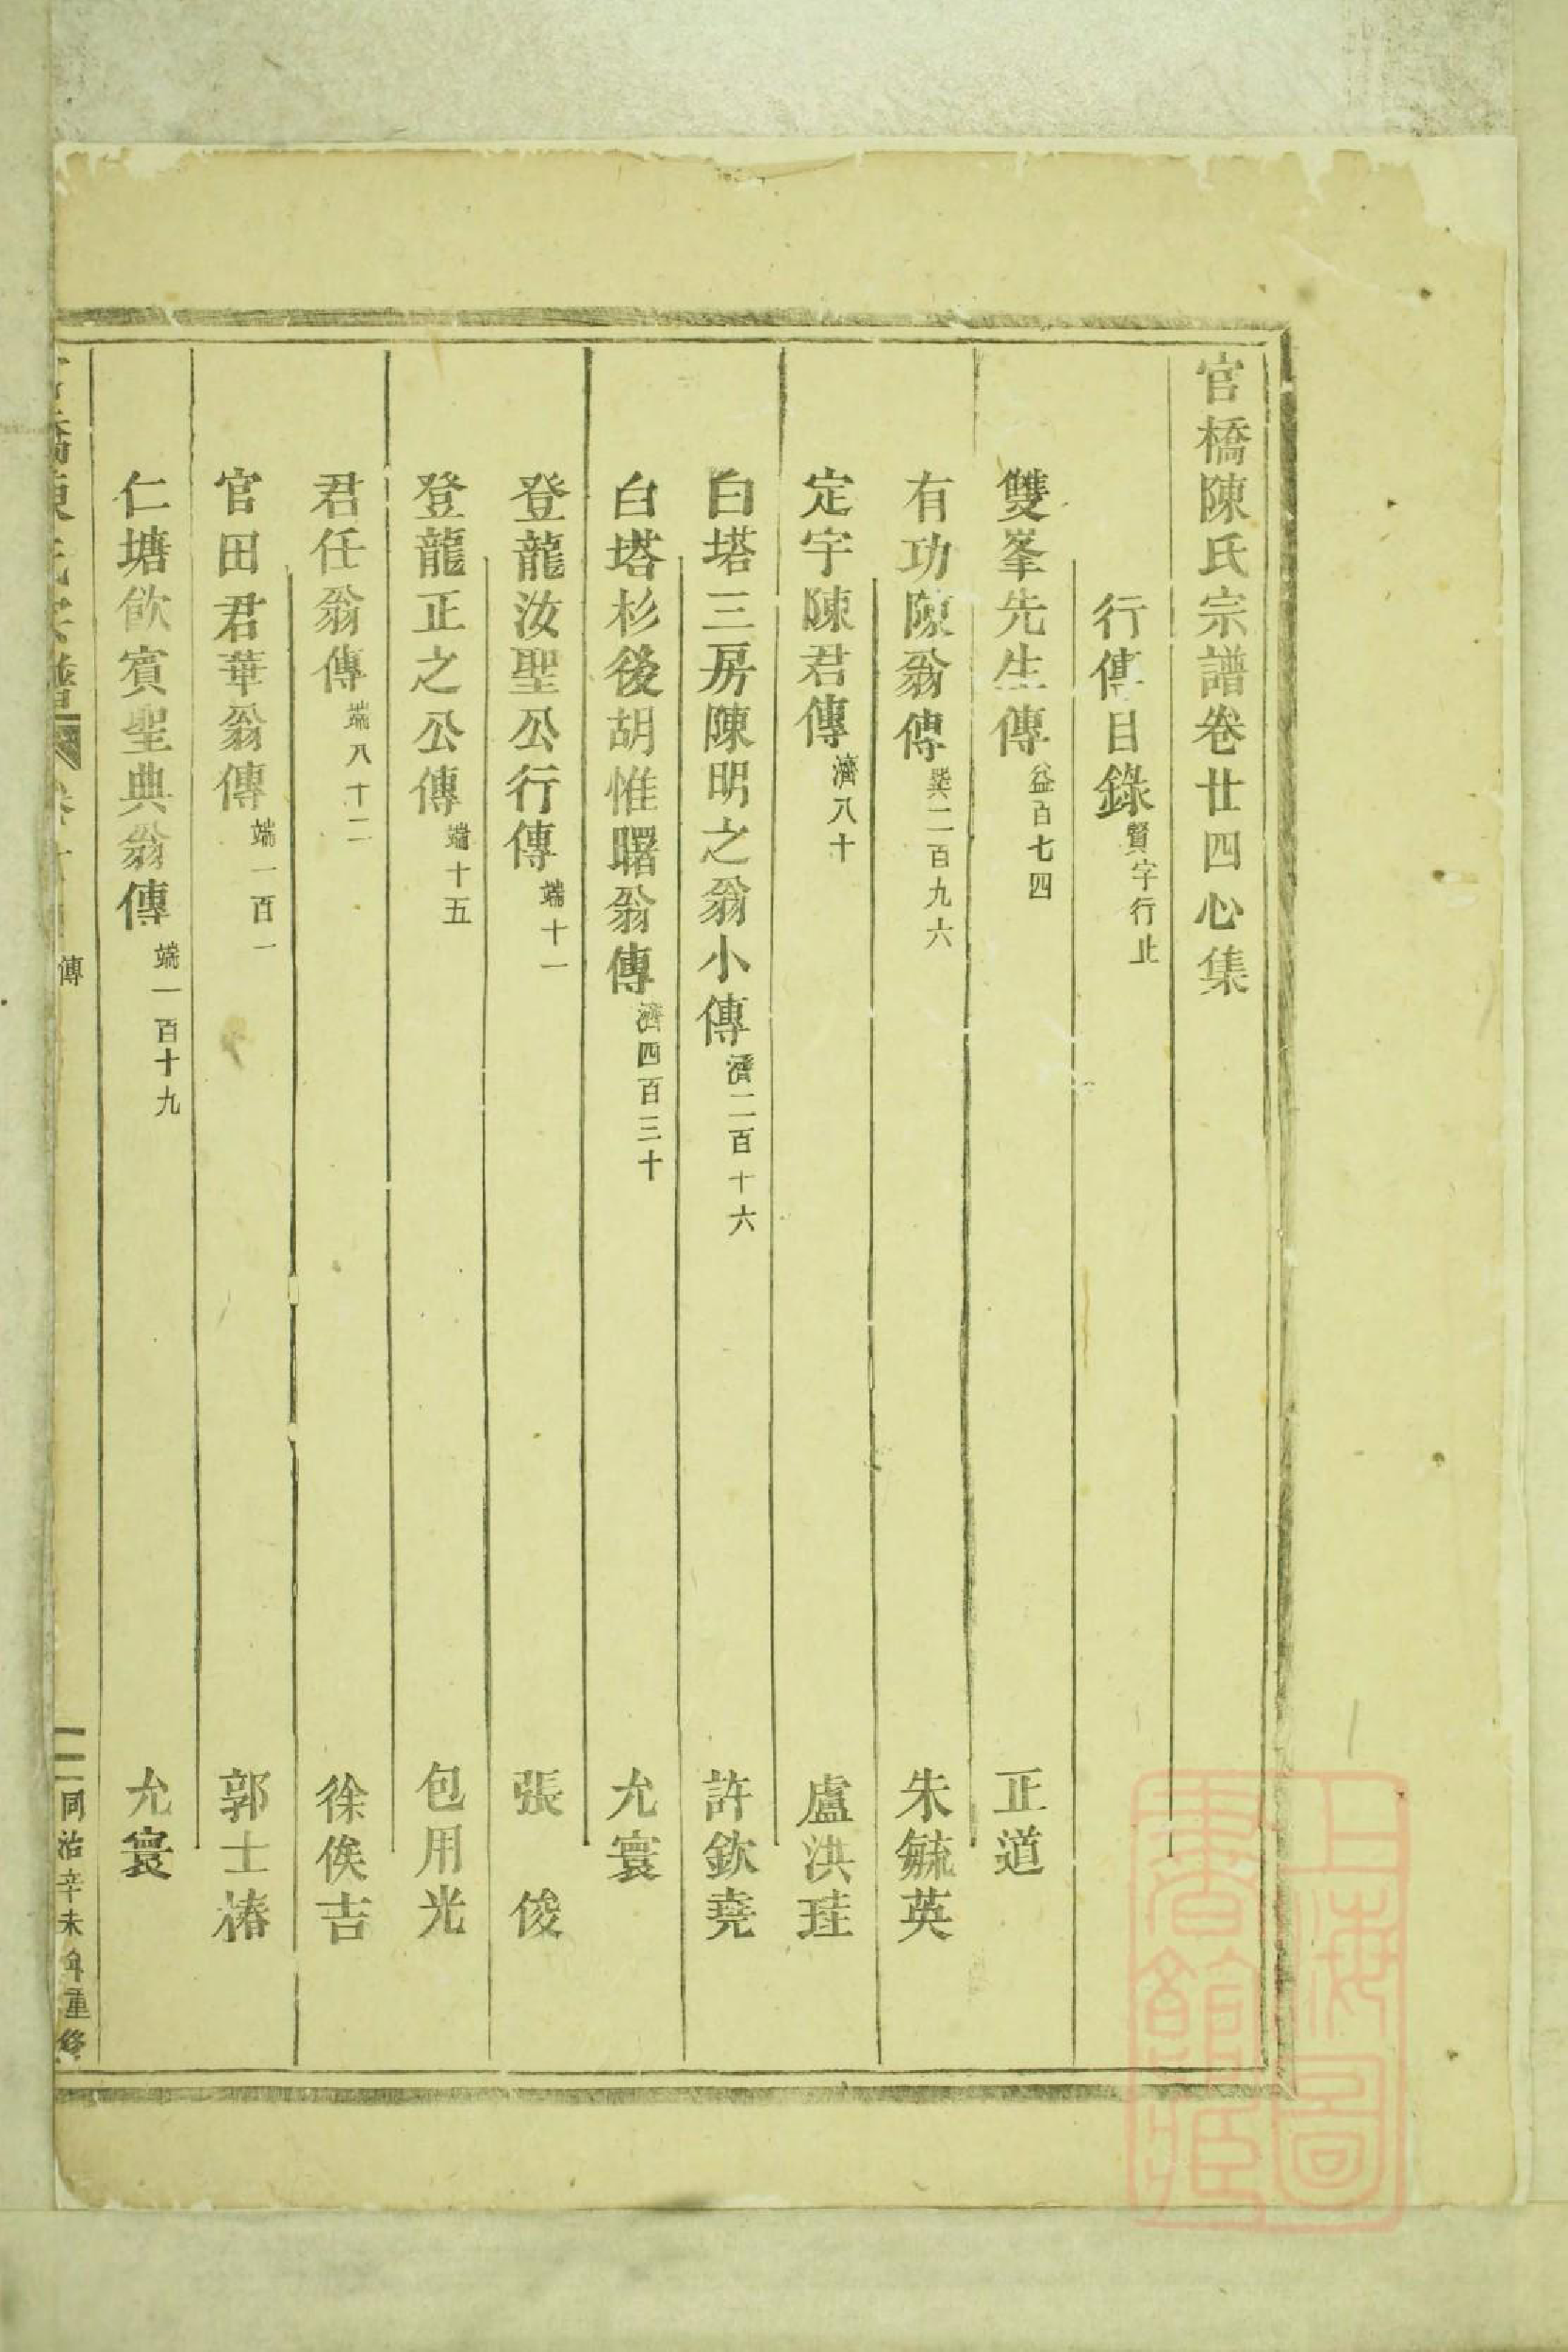 官橋陳氏宗譜卷廿四心集
行傳目錄賢字行止
雙峯先生傳益百七四 正道
有功陳翁傳巽二百九六 朱毓英
定宇陳君傳濟八十 盧洪珪
白塔三房陳明之翁小傳濟二百十六 許欽堯
白塔杉後胡惟曙翁傳濟四百三十 允寰
登龍汝聖公行傳端十一 張 俊
登龍正之公傳端十五 包用光
君任翁傳端八十二 徐俟吉
官田君華翁傳端一百一 郭士椿
仁塘飲賓聖典翁傳端一百十九 允寰
傳 一 同治辛未年重修
上海圖書館藏